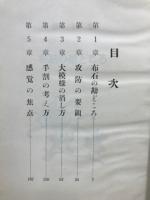 目次
第1章 布石の勘どころ
第2章 攻防の要領
第3章 大模様の消し方
第4章 手割の考え方
第5章 感覚の焦点